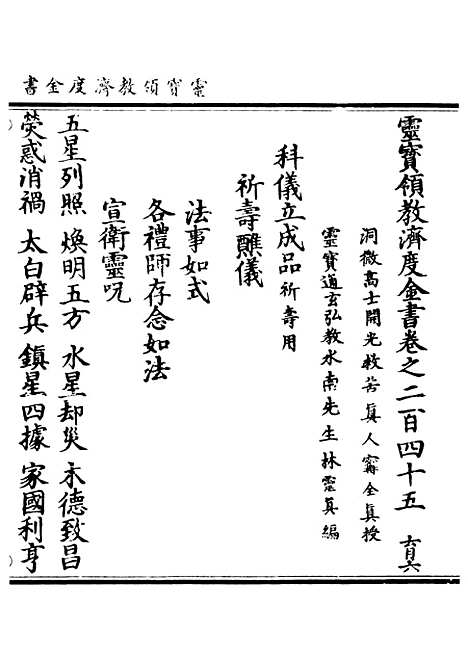 靈寶領教濟度金書
靈寶領教濟度金書卷之二百四十五
洞微高士開光救苦真人甯全真授
靈寶通玄弘教水南先生林靈真編
科儀立成品祈壽用
祈壽醮儀
法事如式
各禮師存念如法
宣衛靈呪
五星列照 煥明五方 水星却災 木德致昌
熒惑消禍 太白辟兵 鎮星四據 家國利亨